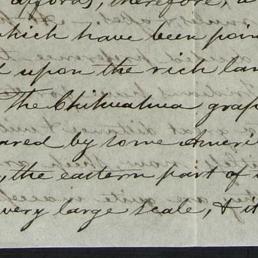 affords, therefore, a
which have been poin
d upon the rich lan
The Chihuahua grap
ared by some Ameri
, the eastern part of
very large scale, & it